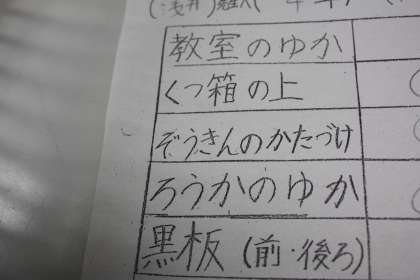 教室のゆか
くつ箱の上
ぞうきんのかたづけ
ろうかのゆか
黒板(前・後ろ)